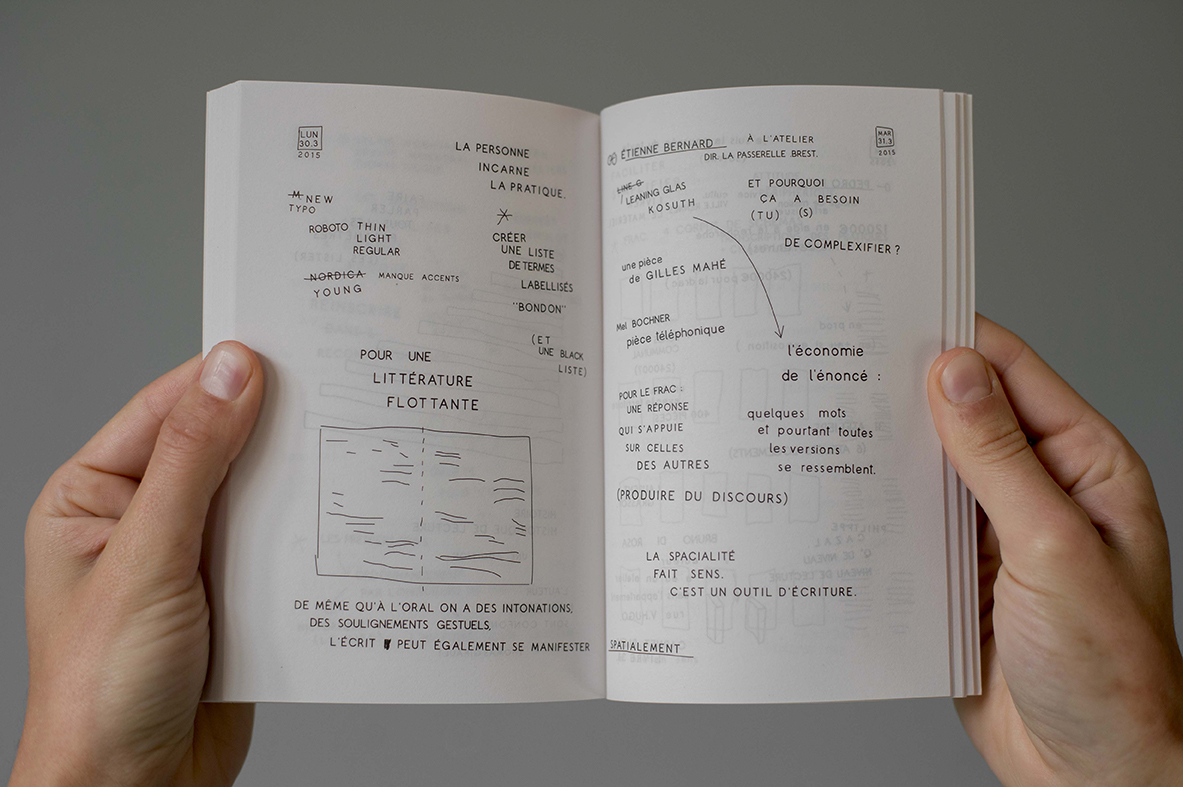 LUN
30.3
2015
LA PERSONNE
INCARNE
LA PRATIQUE.
M NEW
TYPO
ROBOTO THIN
LIGHT
REGULAR
NORDICA MANQUE ACCENTS
YOUNG
CRÉER
UNE LISTE
DE TERMES
LABELLISÉS
"BONDON"
(ET
UNE BLACK
LISTE)
POUR UNE
LITTÉRATURE
FLOTTANTE
DE MÊME QU'À L'ORAL ON A DES INTONATIONS,
DES SOULIGNEMENTS GESTUELS,
L'ÉCRIT PEUT ÉGALEMENT SE MANIFESTER
MAR
31.3
2015
ÉTIENNE BERNARD À L'ATELIER
DIR. LA PASSERELLE BREST.
LINE G
LEANING GLAS
KOSUTH
ET POURQUOI
ÇA A BESOIN
(TU) (S)
DE COMPLEXIFIER ?
une pièce
de GILLES MAHÉ
Mel BOCHNER
pièce téléphonique
l'économie
de l'énoncé :
quelques mots
et pourtant toutes
les versions
se ressemblent.
POUR LE FRAC :
UNE RÉPONSE
QUI S'APPUIE
SUR CELLES
DES AUTRES
(PRODUIRE DU DISCOURS)
LA SPACIALITÉ
FAIT SENS.
C'EST UN OUTIL D'ÉCRITURE.
SPATIALEMENT